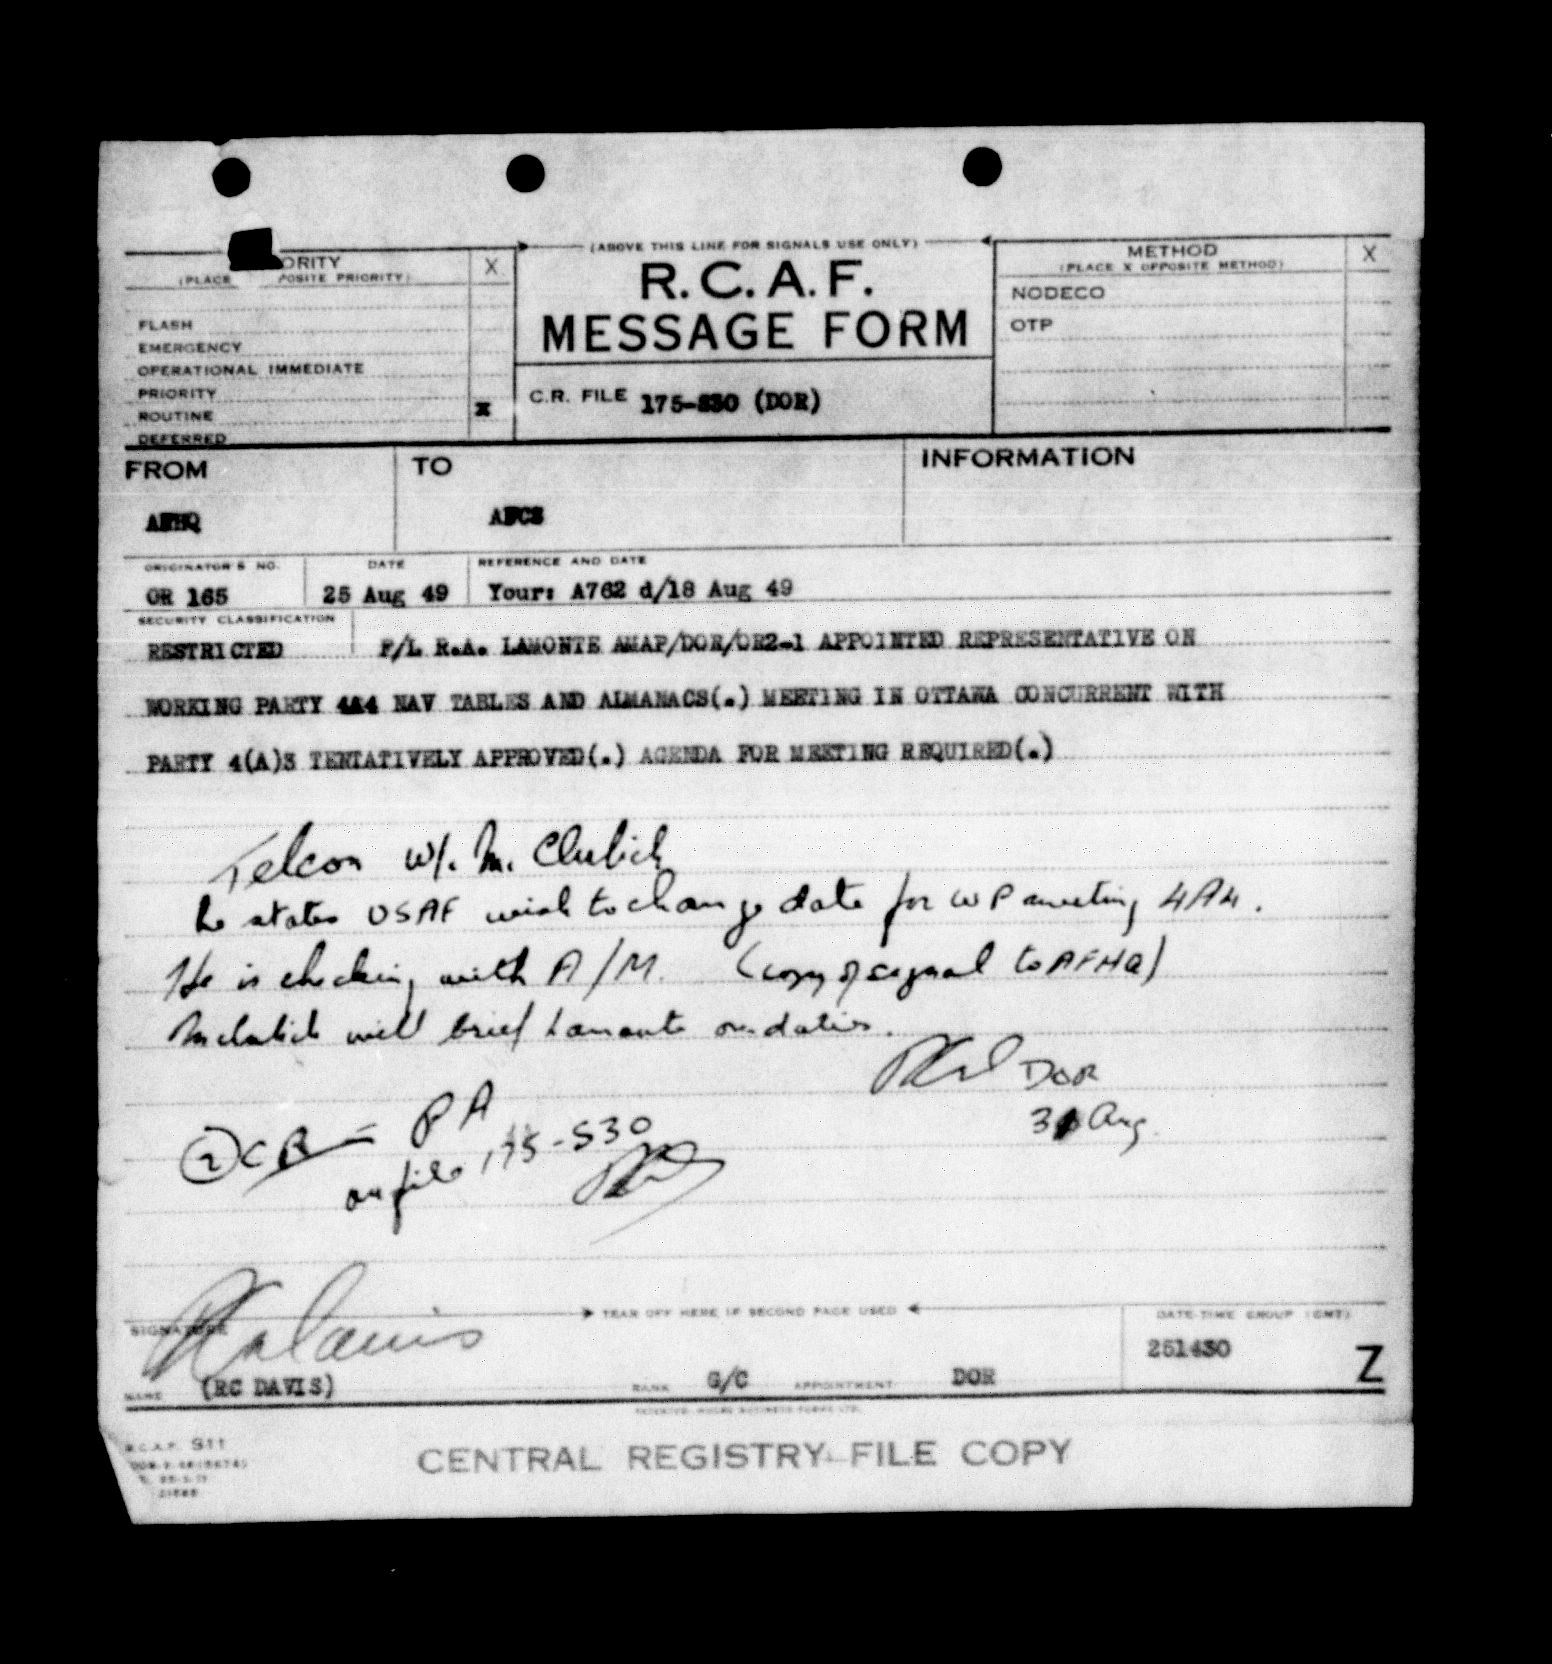 (ABOVE THIS LINE FOR SIGNALS USE ONLY)
ORITY X
(PLACE POSITE PRIORITY)
FLASH
EMERGENCY
OPERATIONAL IMMEDIATE
PRIORITY
ROUTINE X
DEFERRED
R.C.A.F.
MESSAGE FORM
C.R. FILE 175-S30 (DOR)
METHOD X
(PLACE X OPPOSITE METHOD)
NODECO
OTP
FROM TO INFORMATION
AFHQ AFCS
ORIGINATOR'S NO. DATE REFERENCE AND DATE
OR 165 25 Aug 49 Your: A762 d/18 Aug 49
SECURITY CLASSIFICATION
RESTRICTED F/L R.A. LAMONTE AMAP/DOR/OR2-1 APPOINTED REPRESENTATIVE ON
WORKING PARTY 4A4 NAV TABLES AND ALMANACS(.) MEETING IN OTTAWA CONCURRENT WITH
PARTY 4(A)3 TENTATIVELY APPROVED(.) AGENDA FOR MEETING REQUIRED(.)
Telcon w/. McClubich
he states USAF wish to change date for WP meeting 4A4.
He is checking with A/M. (copy of signal to AFHQ)
McClubich will brief Lamonte on dates.
DOR
31 Aug.
② CR — PA
on file 175-S30
TEAR OFF HERE IF SECOND PAGE USED
SIGNATURE RC Davis
DATE-TIME GROUP (GMT)
251430 Z
NAME (RC DAVIS) RANK G/C APPOINTMENT DOR
R.C.A.F. S11
CENTRAL REGISTRY FILE COPY